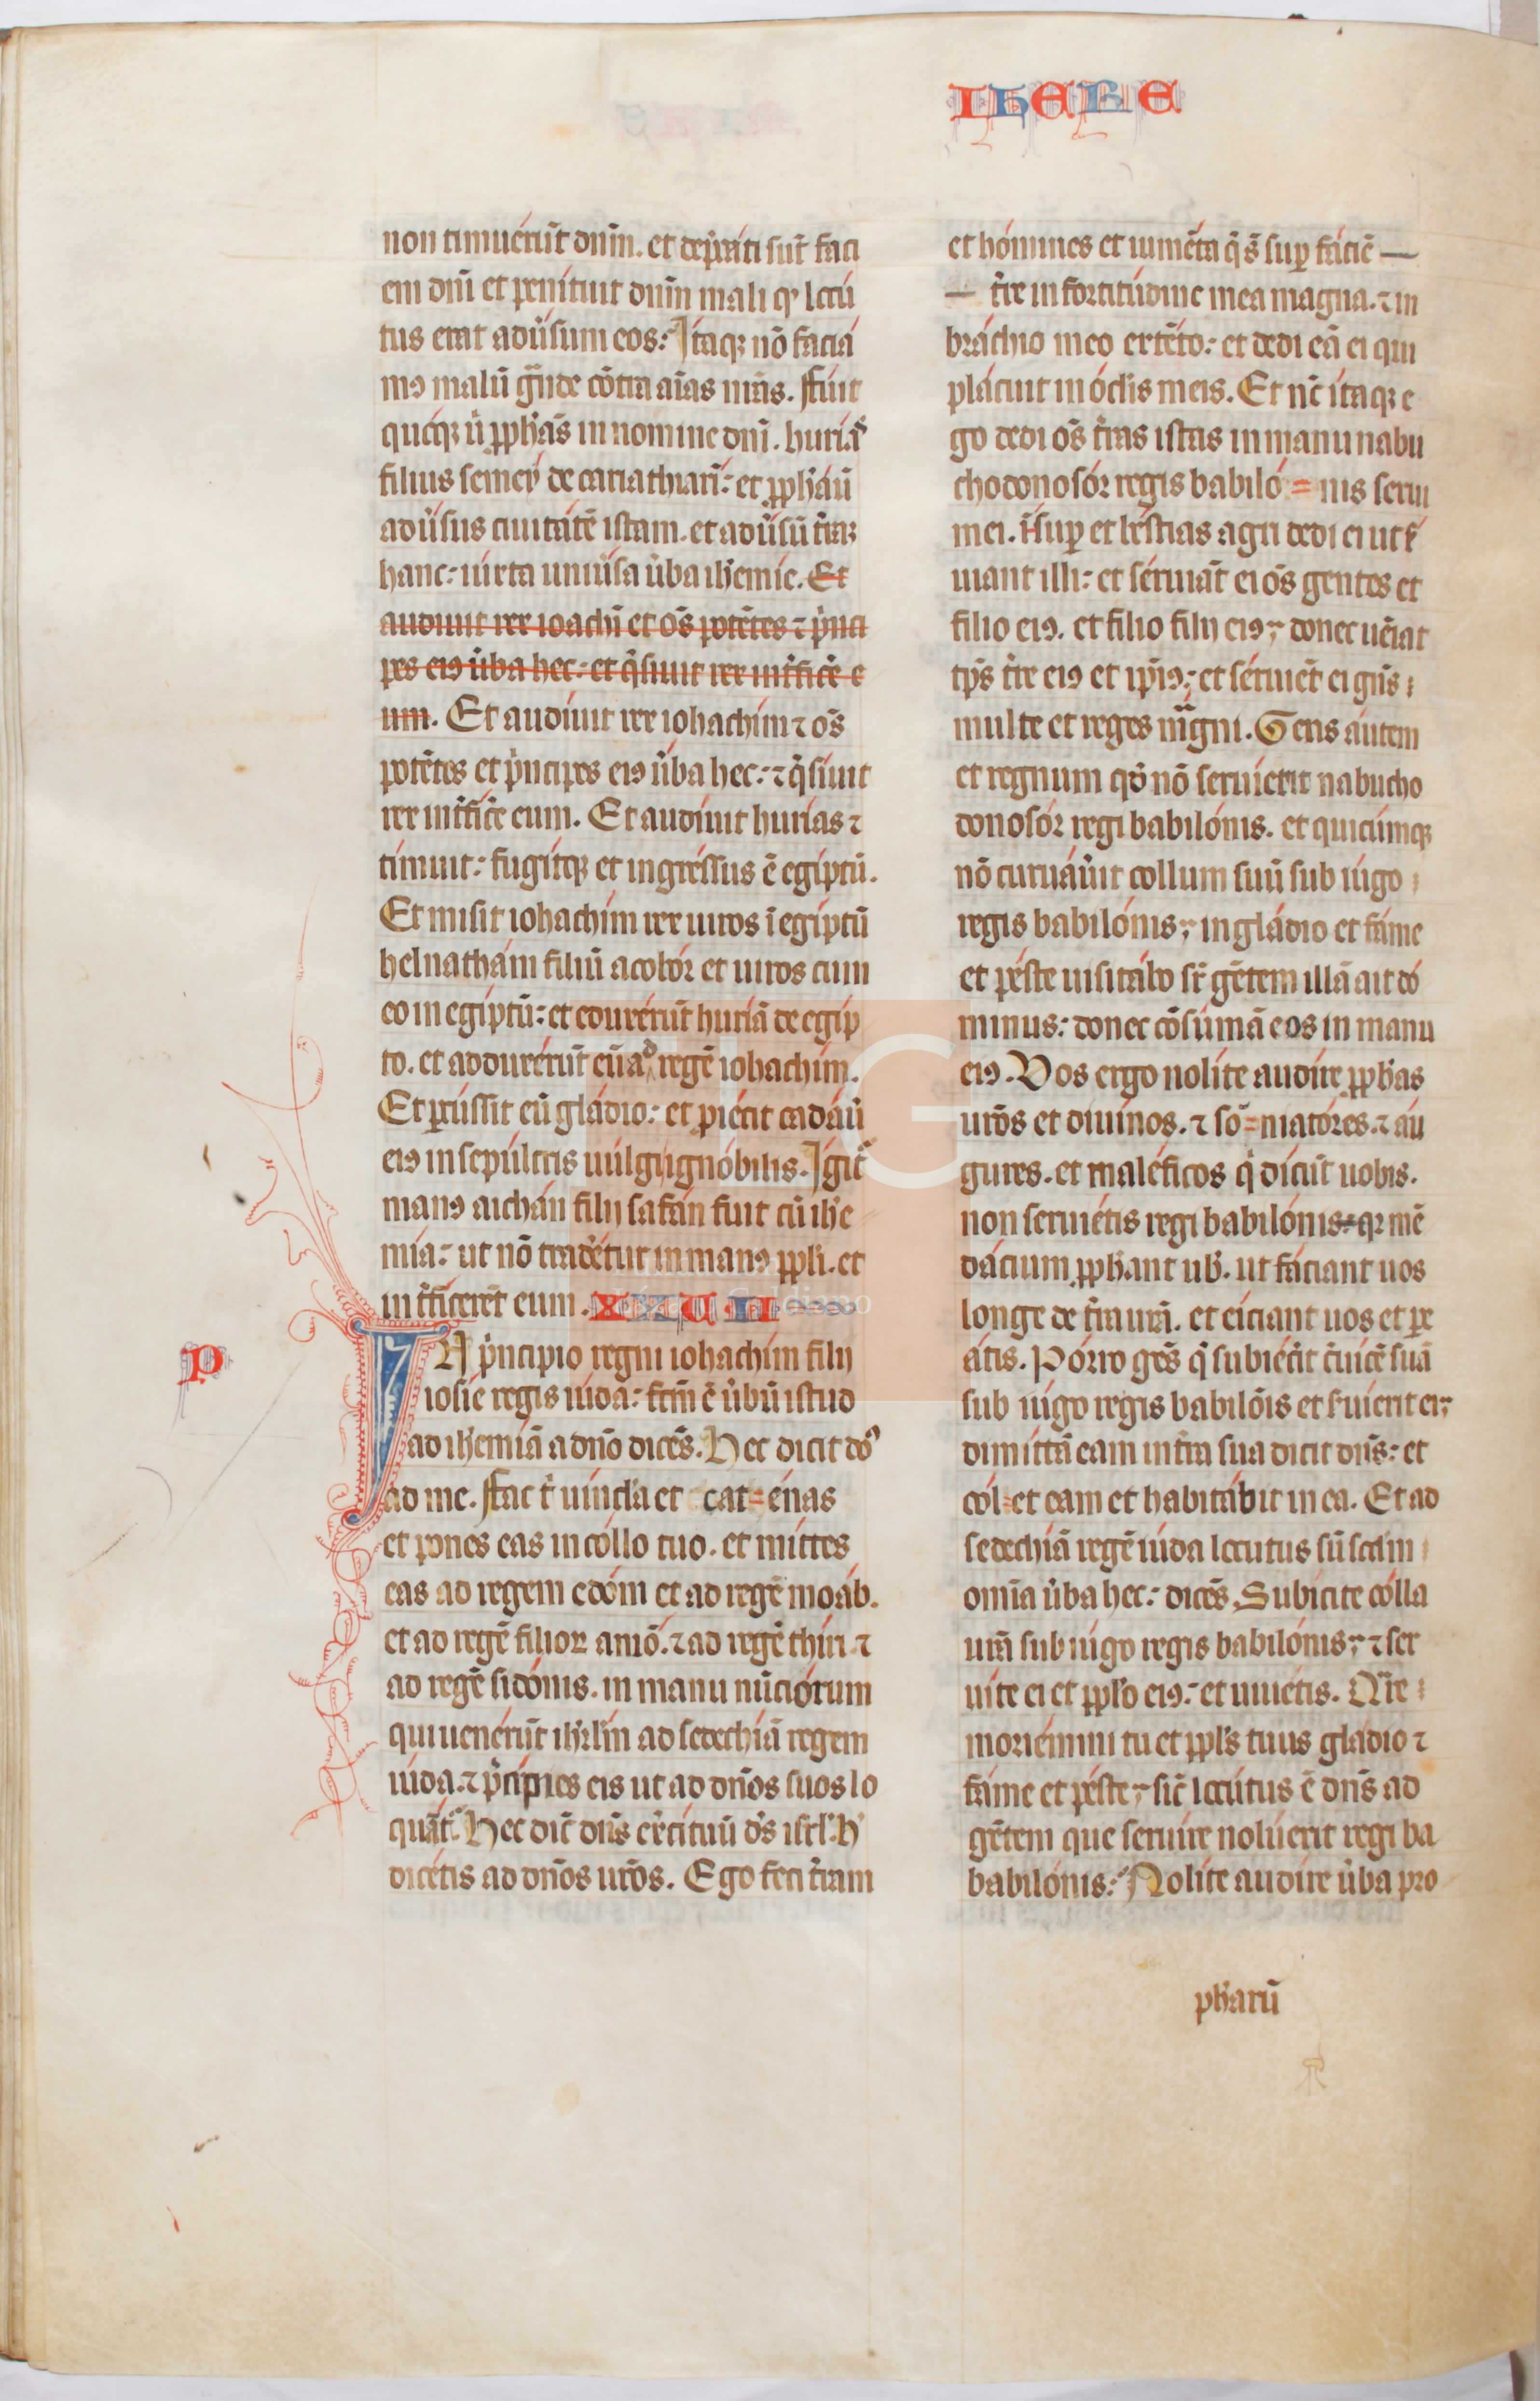 IHERE
non timuérūt dnm̄. et dep̄cáti sūt faci
em dn̄i et penítuit dnm̄ mali qͥ locú
tus erat adūsum eos: Itaqȝ nō faciá
mꝰ malū gͣnde cōtra aīas nr̄as. Fúit
quóqȝ ū ꝓph̄ás in nomine dn̄i. huriás
filius semeý de cariathiarī: et ꝓph̄áū
adūsus ciuitátē istam. et adūsū tr̄aȝ
hanc: iúxta uniūsa ūba ih̄emíe. Et
audíuit rex ioachī et oēs potētes ⁊ pͥnci
pes eiꝰ ūba hec: et q̄síuit rex int̄ficē̄ e
um. Et audíuit rex iohachím ⁊ oēs
potētes et pͥncipes eiꝰ ūba hec: ⁊ q̄síuit
rex int̄ficē̄ eum. Et audíuit hurías ⁊
tímuit: fugítqȝ et ingréssus ē egíptū.
Et misit iohachím rex uiros ī egíptū
helnathám filiū acobór et uiros cum
eo in egíptū: et eduxérūt huriā de egíp
to. et adduxérūt eū ad regē iohachím.
Et ꝑcússit eū gládio: et ꝓiécit cadáū
eiꝰ in sepúlcris uúlgi ignóbilis. Igit̄
manꝰ aichán filij safán fuit cū ih̄e
mía: ut nō tradētur in manꝰ ppl̄i. et
int̄ficerēt eum. XXVII
IN pͥncipio regni iohachím filij
iosíe regis iúda: fctm̄ ē ūbū istud
ad ih̄emiā a dn̄o dicēs. Hec dicit dn̄s
ad me. Fac t̄ uíncla et cat=énas
et pones eas in collo tuo. et míttes
eas ad regem edóm et ad regē moáb.
et ad regē filior amō. ⁊ ad regē thiri ⁊
ad regē sidónis. in manu nūciórum
qui uenérūt ih̄rlm̄ ad sedechíā regem
iúda. ⁊ pͥcípies eis ut ad dn̄os suos lo
quāt̄: Hec dic̄ dn̄s ex̄cítuū ds̄ isrl̄. h̄
dicétis ad dn̄os ur̄os. Ego feci tr̄am
et hómines et iumēta q̄ s̄ suꝑ fáciē —
— tr̄e in fortitúdine mea magna. ⁊ in
bráchio meo extēto: et dedi eā ei qui
plácuit in óclis meis. Et nc̄ ítaqȝ e
go dedi oēs tr̄as istas in manu nabu
chodonosór regis babiló = nis serui
mei. īsuꝑ et béstias agri dedi ei ut s̄
uiant illi: et séruiāt ei oēs gentes et
filio eiꝰ. et filio filij eiꝰ; donec uéniat
tp̄s tr̄e eiꝰ et ip̄iꝰ; et séruiēt ei gn̄s
multe et reges mgni. Gens áutem
et regnum qd̄ nō seruíerit nabucho
donosór regi babilónis. et quicúmqȝ
nō curuáūit collum suū sub iúgo
regis babilónis; in gládio et fáme
et péste uisitábo sr̄ gētem illā ait dó
minus: donec cōsúmā eos in manu
eiꝰ. Vos ergo nolíte audíre ꝓph̄as
ur̄os et diuínos. ⁊ sō=niatóres. ⁊ áu
gures. et maléficos qͥ dícūt uobis.
non seruiétis regi babilónis. qꝛ mē
dácium ꝓph̄ant ub̄. ut fáciant uos
longe de tr̄a ur̄a. et eíciant uos et ꝑe
átis. Porro gēs q̄ subiécīt c̄uícē suā
sub iúgo regis babilōis et s̄uíerit ei;
dimíttā eam in tr̄a sua dicit dn̄s: et
cól=et eam et habitábit in ea. Et ad
sedechíā regē iúda locutus sū scdm̄
omīa ūba hec: dicēs. Subícite cólla
ur̄a sub iúgo regis babilónis; ⁊ ser
uíte ei et ppl̄o eiꝰ: et uiuétis. Qͣre
moriémini tu et ppl̄s tuus gládio ⁊
fáme et péste; sic̄ locútus ē dn̄s ad
gētem que seruíre nolúerit regi ba
babilónis: Nolíte audíre ūba pro
ph̄arū
P